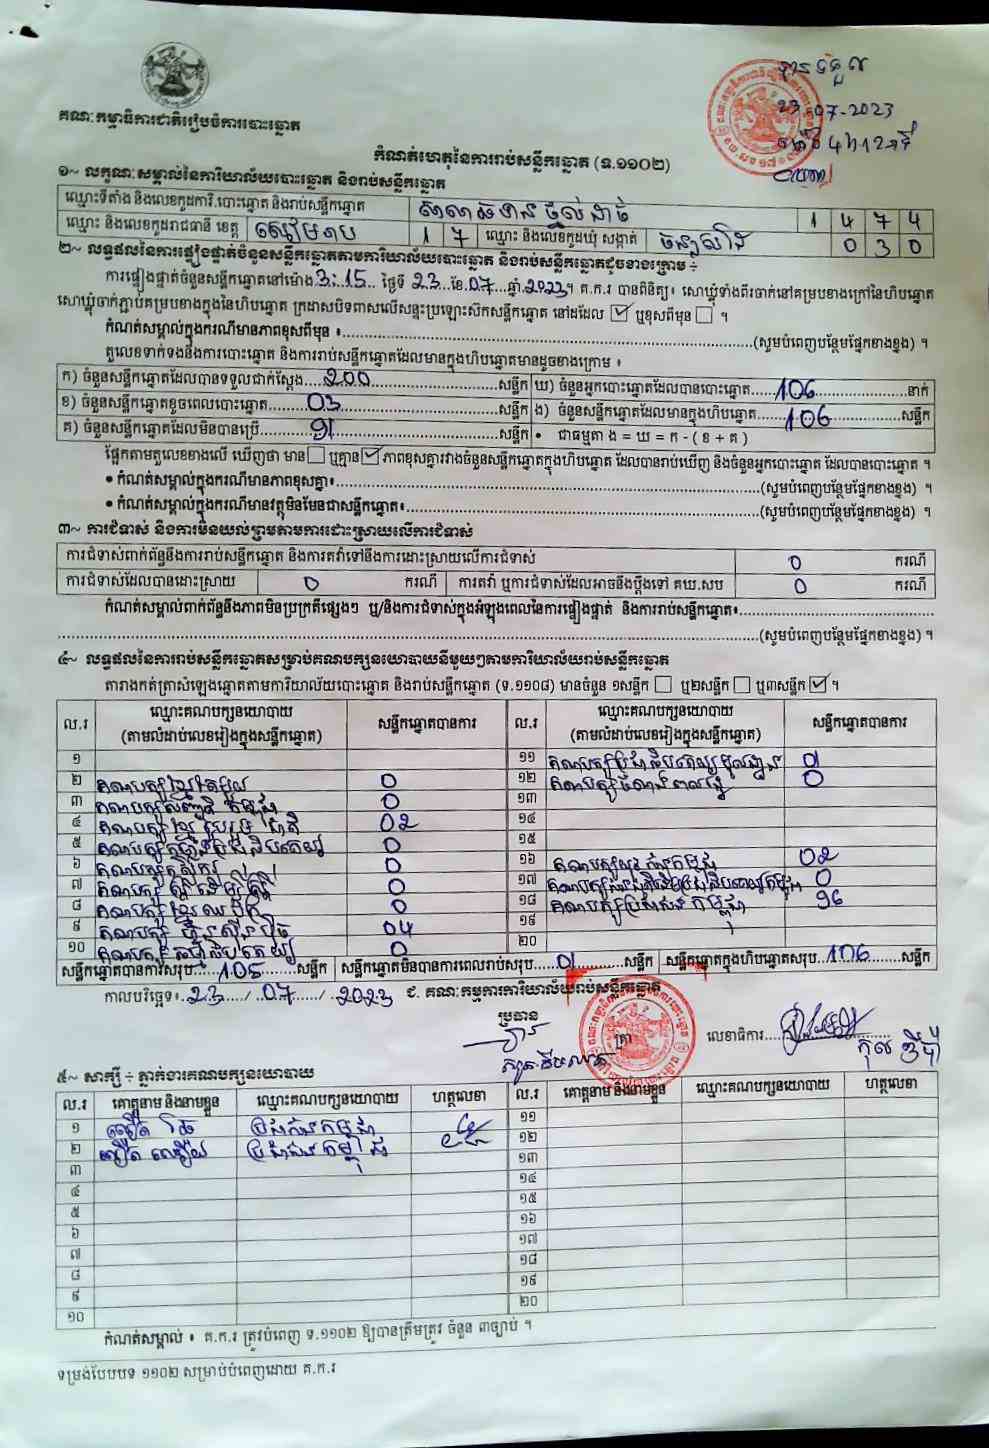 គណៈកម្មាធិការជាតិរៀបចំការបោះឆ្នោត
បានទទួល
23-07-2023
កំណត់ហេតុនៃការរាប់សន្លឹកឆ្នោត (ទ.១១០២)
១~ លក្ខណៈសម្គាល់នៃការិយាល័យបោះឆ្នោត និងរាប់សន្លឹកឆ្នោត
ឈ្មោះទីតាំង និងលេខកូដការិ.បោះឆ្នោត និងរាប់សន្លឹកឆ្នោត 1 4 7 4
ឈ្មោះ និងលេខកូដរាជធានី ខេត្ត សៀមរាប 1 7 ឈ្មោះ និងលេខកូដឃុំ សង្កាត់ 0 3 0
២~ លទ្ធផលនៃការផ្ទៀងផ្ទាត់ចំនួនសន្លឹកឆ្នោតតាមការិយាល័យបោះឆ្នោត និងរាប់សន្លឹកឆ្នោតដូចខាងក្រោម ÷
ការផ្ទៀងផ្ទាត់ចំនួនសន្លឹកឆ្នោតនៅម៉ោង 3:15 ថ្ងៃទី 23 ខែ 07 ឆ្នាំ 2023 ។ គ.ក.រ បានពិនិត្យ៖ សោឃ្លុំទាំងពីរចាក់នៅគម្របខាងក្រៅនៃហិបឆ្នោត
សោឃ្លុំចាក់ភ្ជាប់គម្របខាងក្នុងនៃហិបឆ្នោត ក្រដាសបិទពាសលើសន្ទះប្រឡោះស៊កសន្លឹកឆ្នោត នៅដដែល ☑ ឬខុសពីមុន ☐ ។
កំណត់សម្គាល់ក្នុងករណីមានភាពខុសពីមុន ៖ (សូមបំពេញបន្ថែមផ្នែកខាងខ្នង) ។
តួលេខទាក់ទងនឹងការបោះឆ្នោត និងការរាប់សន្លឹកឆ្នោតដែលមានក្នុងហិបឆ្នោតមានដូចខាងក្រោម ៖
ក) ចំនួនសន្លឹកឆ្នោតដែលបានទទួលជាក់ស្តែង 200 សន្លឹក ឃ) ចំនួនអ្នកបោះឆ្នោតដែលបានបោះឆ្នោត 106 នាក់
ខ) ចំនួនសន្លឹកឆ្នោតខូចពេលបោះឆ្នោត 03 សន្លឹក ង) ចំនួនសន្លឹកឆ្នោតដែលមានក្នុងហិបឆ្នោត 106 សន្លឹក
គ) ចំនួនសន្លឹកឆ្នោតដែលមិនបានប្រើ 91 សន្លឹក • ជាធម្មតា ង = ឃ = ក - ( ខ + គ )
ផ្អែកតាមតួលេខខាងលើ ឃើញថា មាន ☐ ឬគ្មាន ☑ ភាពខុសគ្នារវាងចំនួនសន្លឹកឆ្នោតក្នុងហិបឆ្នោត ដែលបានរាប់ឃើញ និងចំនួនអ្នកបោះឆ្នោត ដែលបានបោះឆ្នោត ។
• កំណត់សម្គាល់ក្នុងករណីមានភាពខុសគ្នា៖ (សូមបំពេញបន្ថែមផ្នែកខាងខ្នង) ។
• កំណត់សម្គាល់ក្នុងករណីមានវត្ថុមិនមែនជាសន្លឹកឆ្នោត៖ (សូមបំពេញបន្ថែមផ្នែកខាងខ្នង) ។
៣~ ការជំទាស់ និងការមិនយល់ព្រមតាមការដោះស្រាយលើការជំទាស់
ការជំទាស់ពាក់ព័ន្ធនឹងការរាប់សន្លឹកឆ្នោត និងការតវ៉ាទៅនឹងការដោះស្រាយលើការជំទាស់ 0 ករណី
ការជំទាស់ដែលបានដោះស្រាយ 0 ករណី ការតវ៉ា ឬការជំទាស់ដែលអាចនឹងប្តឹងទៅ គឃ.សប 0 ករណី
កំណត់សម្គាល់ពាក់ព័ន្ធនឹងភាពមិនប្រក្រតីផ្សេងៗ ឬ/និងការជំទាស់ក្នុងអំឡុងពេលនៃការផ្ទៀងផ្ទាត់ និងការរាប់សន្លឹកឆ្នោត៖
(សូមបំពេញបន្ថែមផ្នែកខាងខ្នង) ។
៤~ លទ្ធផលនៃការរាប់សន្លឹកឆ្នោតសម្រាប់គណបក្សនយោបាយនីមួយៗតាមការិយាល័យរាប់សន្លឹកឆ្នោត
តារាងកត់ត្រាសំឡេងឆ្នោតតាមការិយាល័យបោះឆ្នោត និងរាប់សន្លឹកឆ្នោត (ទ.១១០៨) មានចំនួន ១សន្លឹក ☐ ឬ២សន្លឹក ☐ ឬ៣សន្លឹក ☑ ។
ល.រ ឈ្មោះគណបក្សនយោបាយ (តាមលំដាប់លេខរៀងក្នុងសន្លឹកឆ្នោត) សន្លឹកឆ្នោតបានការ ល.រ ឈ្មោះគណបក្សនយោបាយ (តាមលំដាប់លេខរៀងក្នុងសន្លឹកឆ្នោត) សន្លឹកឆ្នោតបានការ
១ ១១ គណបក្សប្រជាធិបតេយ្យមូលដ្ឋាន 01
២ គណបក្សខ្មែរតែមួយ 0 ១២ 0
៣ គណបក្សសញ្ជាតិកម្ពុជា 0 ១៣
៤ គណបក្សខ្មែររួបរួមជាតិ 02 ១៤
៥ 0 ១៥
៦ គណបក្សកសិករ 0 ១៦ 02
៧ គណបក្សស្ត្រីដើម្បីស្ត្រី 0 ១៧ 0
៨ គណបក្សខ្មែរឈប់ក្រ 0 ១៨ គណបក្សប្រជាជនកម្ពុជា 96
៩ គណបក្សហ៊្វុនស៊ិនប៉ិច 04 ១៩
១០ គណបក្សធម្មាធិបតេយ្យ 0 ២០
សន្លឹកឆ្នោតបានការសរុប 105 សន្លឹក សន្លឹកឆ្នោតមិនបានការពេលរាប់សរុប 01 សន្លឹក សន្លឹកឆ្នោតក្នុងហិបឆ្នោតសរុប 106 សន្លឹក
កាលបរិច្ឆេទ៖ 23 / 07 / 2023 ជ. គណៈកម្មការការិយាល័យរាប់សន្លឹកឆ្នោត
ប្រធាន ត្រា លេខាធិការ
៥~ សាក្សី ÷ ភ្នាក់ងារគណបក្សនយោបាយ
ល.រ គោត្តនាម និងនាមខ្លួន ឈ្មោះគណបក្សនយោបាយ ហត្ថលេខា ល.រ គោត្តនាម និងនាមខ្លួន ឈ្មោះគណបក្សនយោបាយ ហត្ថលេខា
១ ប្រជាជនកម្ពុជា ១១
២ ប្រជាជនកម្ពុជា ១២
៣ ១៣
៤ ១៤
៥ ១៥
៦ ១៦
៧ ១៧
៨ ១៨
៩ ១៩
១០ ២០
កំណត់សម្គាល់ ៖ គ.ក.រ ត្រូវបំពេញ ទ.១១០២ ឱ្យបានត្រឹមត្រូវ ចំនួន ៣ច្បាប់ ។
ទម្រង់បែបបទ ១១០២ សម្រាប់បំពេញដោយ គ.ក.រ